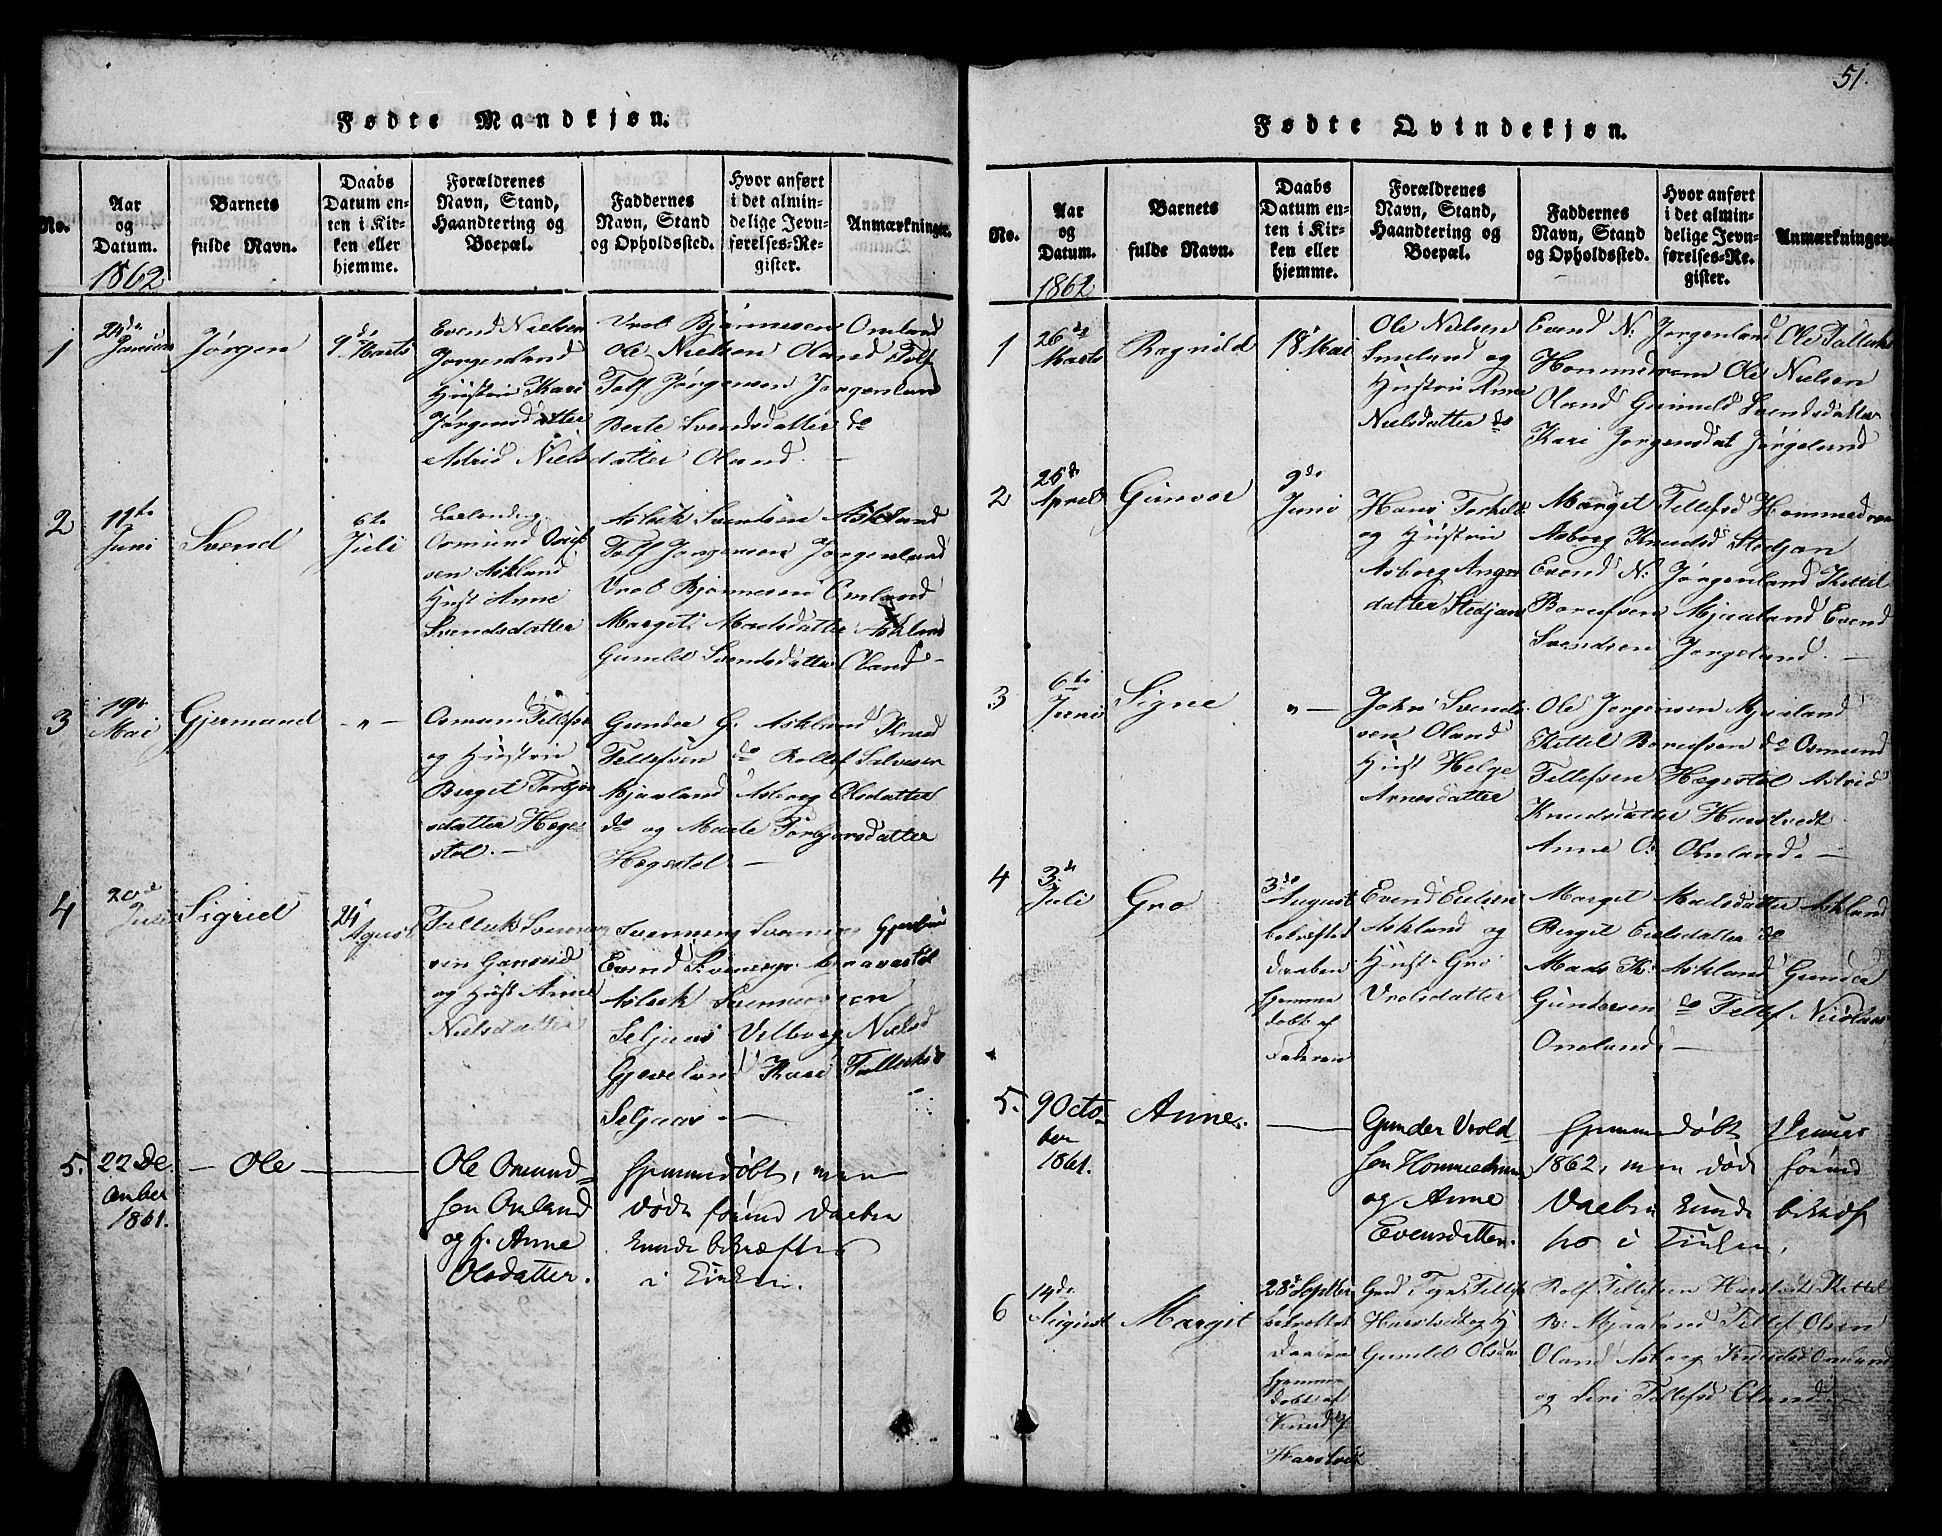 51.
Fødte Mandkjøn.
No.
Aar og Datum.
Barnets fulde Navn.
Daabs Datum enten i Kirken eller hjemme.
Forældrenes Navn, Stand, Haandtering og Boepæl.
Faddernes Navn, Stand og Opholdssted.
Hvor anført i det almindelige Jevnførelses-Register.
Anmærkninger.
1862
1
24de Januar
Jørgen
9de Marts
Evend Nielsen
Jorgenland
Hustrue Kari
Jørgensdatter
Vrol Bjørnesen Omland
Ole Nielsen Oland Tolf
Tolf Jørgensen Jorgenland
Berte Svendsdatter do
Astrid Nielsdatter Oland.
2
11te Juni
Svend
6te Juli
Osmund
Askland
Hust Anne
Svendsdatter
Aslack Svendsen Askland
Tolf Jorgensen Jorgenland
Vrol Bjørnesen Omland
Margit Madsdatter Askland
Gunild Svendsdatter Oland
3
19de Mai
Gjermund
- " -
Osmund Tellefsen
og Hustrue
Berget Torbjørs
datter Hege
stol.
Gunder G. Askland Knud
Tellefsen do Rollef Salvesen
Mjaaland Asborg Olsdatter
do og Marte Torbjorsdatter
Hegestol
4
20de Juli
Sigrid
24 Agust
Tallak Svennung
sen
og Hust Anne
Nielsdatter
Svennung
Evend
Aslack Svennungsen
Seljaas Vilborg Nielsd
Kari Tallaksd
Seljaas
5.
22 De.
cember
1861.
Ole
Ole Osmund-
sen Omland
og h. Anne
Olsdatter.
Hjemmedøbt, men
døde forind Daaben
kunde bekræftes
i Kirken.
Fødte Qvindekjøn.
No.
Aar og Datum.
Barnets fulde Navn.
Daabs Datum enten i Kirken eller hjemme.
Forældrenes Navn, Stand, Haandtering og Boepæl.
Faddernes Navn, Stand og Opholdssted.
Hvor anført i det almindelige Jevnførelses-Register.
Anmærkninger.
1862
1
26de Marts
Ragnild
18 Mai
Ole Nielsen
Smeland og
Hustrue Anne
Nielsdatter do
Evend N: Jorgenland Ole Tallaks
Hommedrom Ole Nielsen
Oland Gunild Svendsdatter
Kari Jorgensdat Jørgeland
2
25de April
Gunvor
9de Juni
Hans Torkeld
og Hustrue
Asborg
datter Stedjan
Marget Tellefsd Hommedrom
Asborg Knudsd Stedjan
Evend N: Jørgenland Kettil
Borufsen Mjaaland Evend
Svendsen Jorgeland.
3
6te Juni
Signe
" -
John Svend
sen Oland
Hust Helge
Arnesdatter
Ole Jorgensen Mjaaland
Kettel Borufsen do Osmund
Tellefsen Hegestol Astrid
Knudsdatter Harstvedt
Anne O: Omland.
4
3de Juli
Gro
3de August
bekræftet
Daaben
hjemme
dobt af
Faderen
Evend Eielsen
Askland og
Hust Gro
Vrolsdatter
Marget Madsdatter Askland
Berget Eielsdatter do
Mads K: Askland Gunder
Gundersen do Tellef Nicolaus
Omland
5.
9 Octo-
ber
1861.
Anne.
Gunder Vrold-
sen Hommedrom
og Anne
Evensdatter.
Hjemmedøbt
1862, men døde forind
Daaben kunde bekræf
tes i Kirken.
6
14de August
Margit
28de Septbr
bekræftet
Daaben
hjemme
dobt af
Knud
Harstvedt
Tellefs
Harstvedt og H
Gunild Olsdat
Rolf Tellefsen Harstvedt Kettel
B: Mjaaland Tellef Olsen
Oland Asborg Knudsd Omland
og Siri Tellefsd Oland